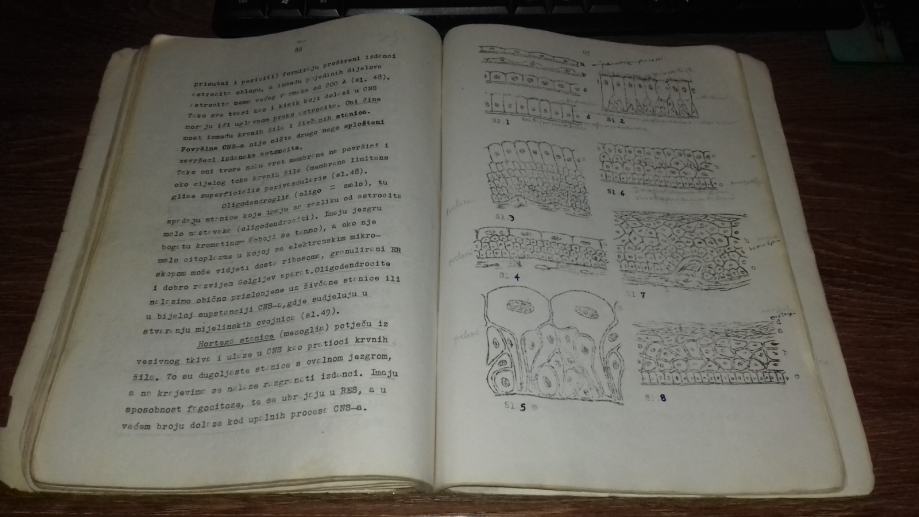 88
prisutni i periciti) formiraju prošireni izdanci
astrocita oblogu, a između pojedinih dijelova
astrocita nema većeg razmaka od 200 A (sl. 48).
Tako sve tvari kao i kisik koji dolazi u CNS
moraju ići uglavnom preko astrocita. Oni čine
most između krvnih žila i živčanih stanica.
Površina CNS-a nije ništa drugo nego splošteni
završeci izdanaka astrocita.
Tako oni tvore neku vrst membrane na površini i
oko cijelog toka krvnih žila (membrana limitans
gliae superficialis perivascularis (sl.48).
Oligodendroglia (oligo = malo), tu
spadaju stanice koje imaju za razliku od astrocita
malo nastavaka (oligodendrociti). Imaju jezgru
bogatu kromatinom (boji se tamno), a oko nje
malo citoplazme u kojoj se elektronskim mikro-
skopom može vidjeti dosta ribosoma, granulirani ER
i dobro razvijen Golgijev aparat.Oligodendrocite
nalazimo obično prislonjene uz živčane stanice ili
u bijeloj supstanciji CNS-a,gdje sudjeluju u
stvaranju mijelinskih ovojnica (sl.49).
Hortega stanice (mesoglia) potječu iz
vezivnog tkiva i ulaze u CNS kao pratioci krvnih
žila. To su dugoljaste stanice s ovalnom jezgrom,
a na krajevima se nalaze razgranati izdanci. Imaju
sposobnost fagocitoze, te se ubrajaju u RES, a u
većem broju dolaze kod upalnih procesa CNS-a.
Sl. 1
Sl. 2
Sl. 3
Sl. 6
Sl. 4
Sl. 7
Sl. 5
Sl. 8